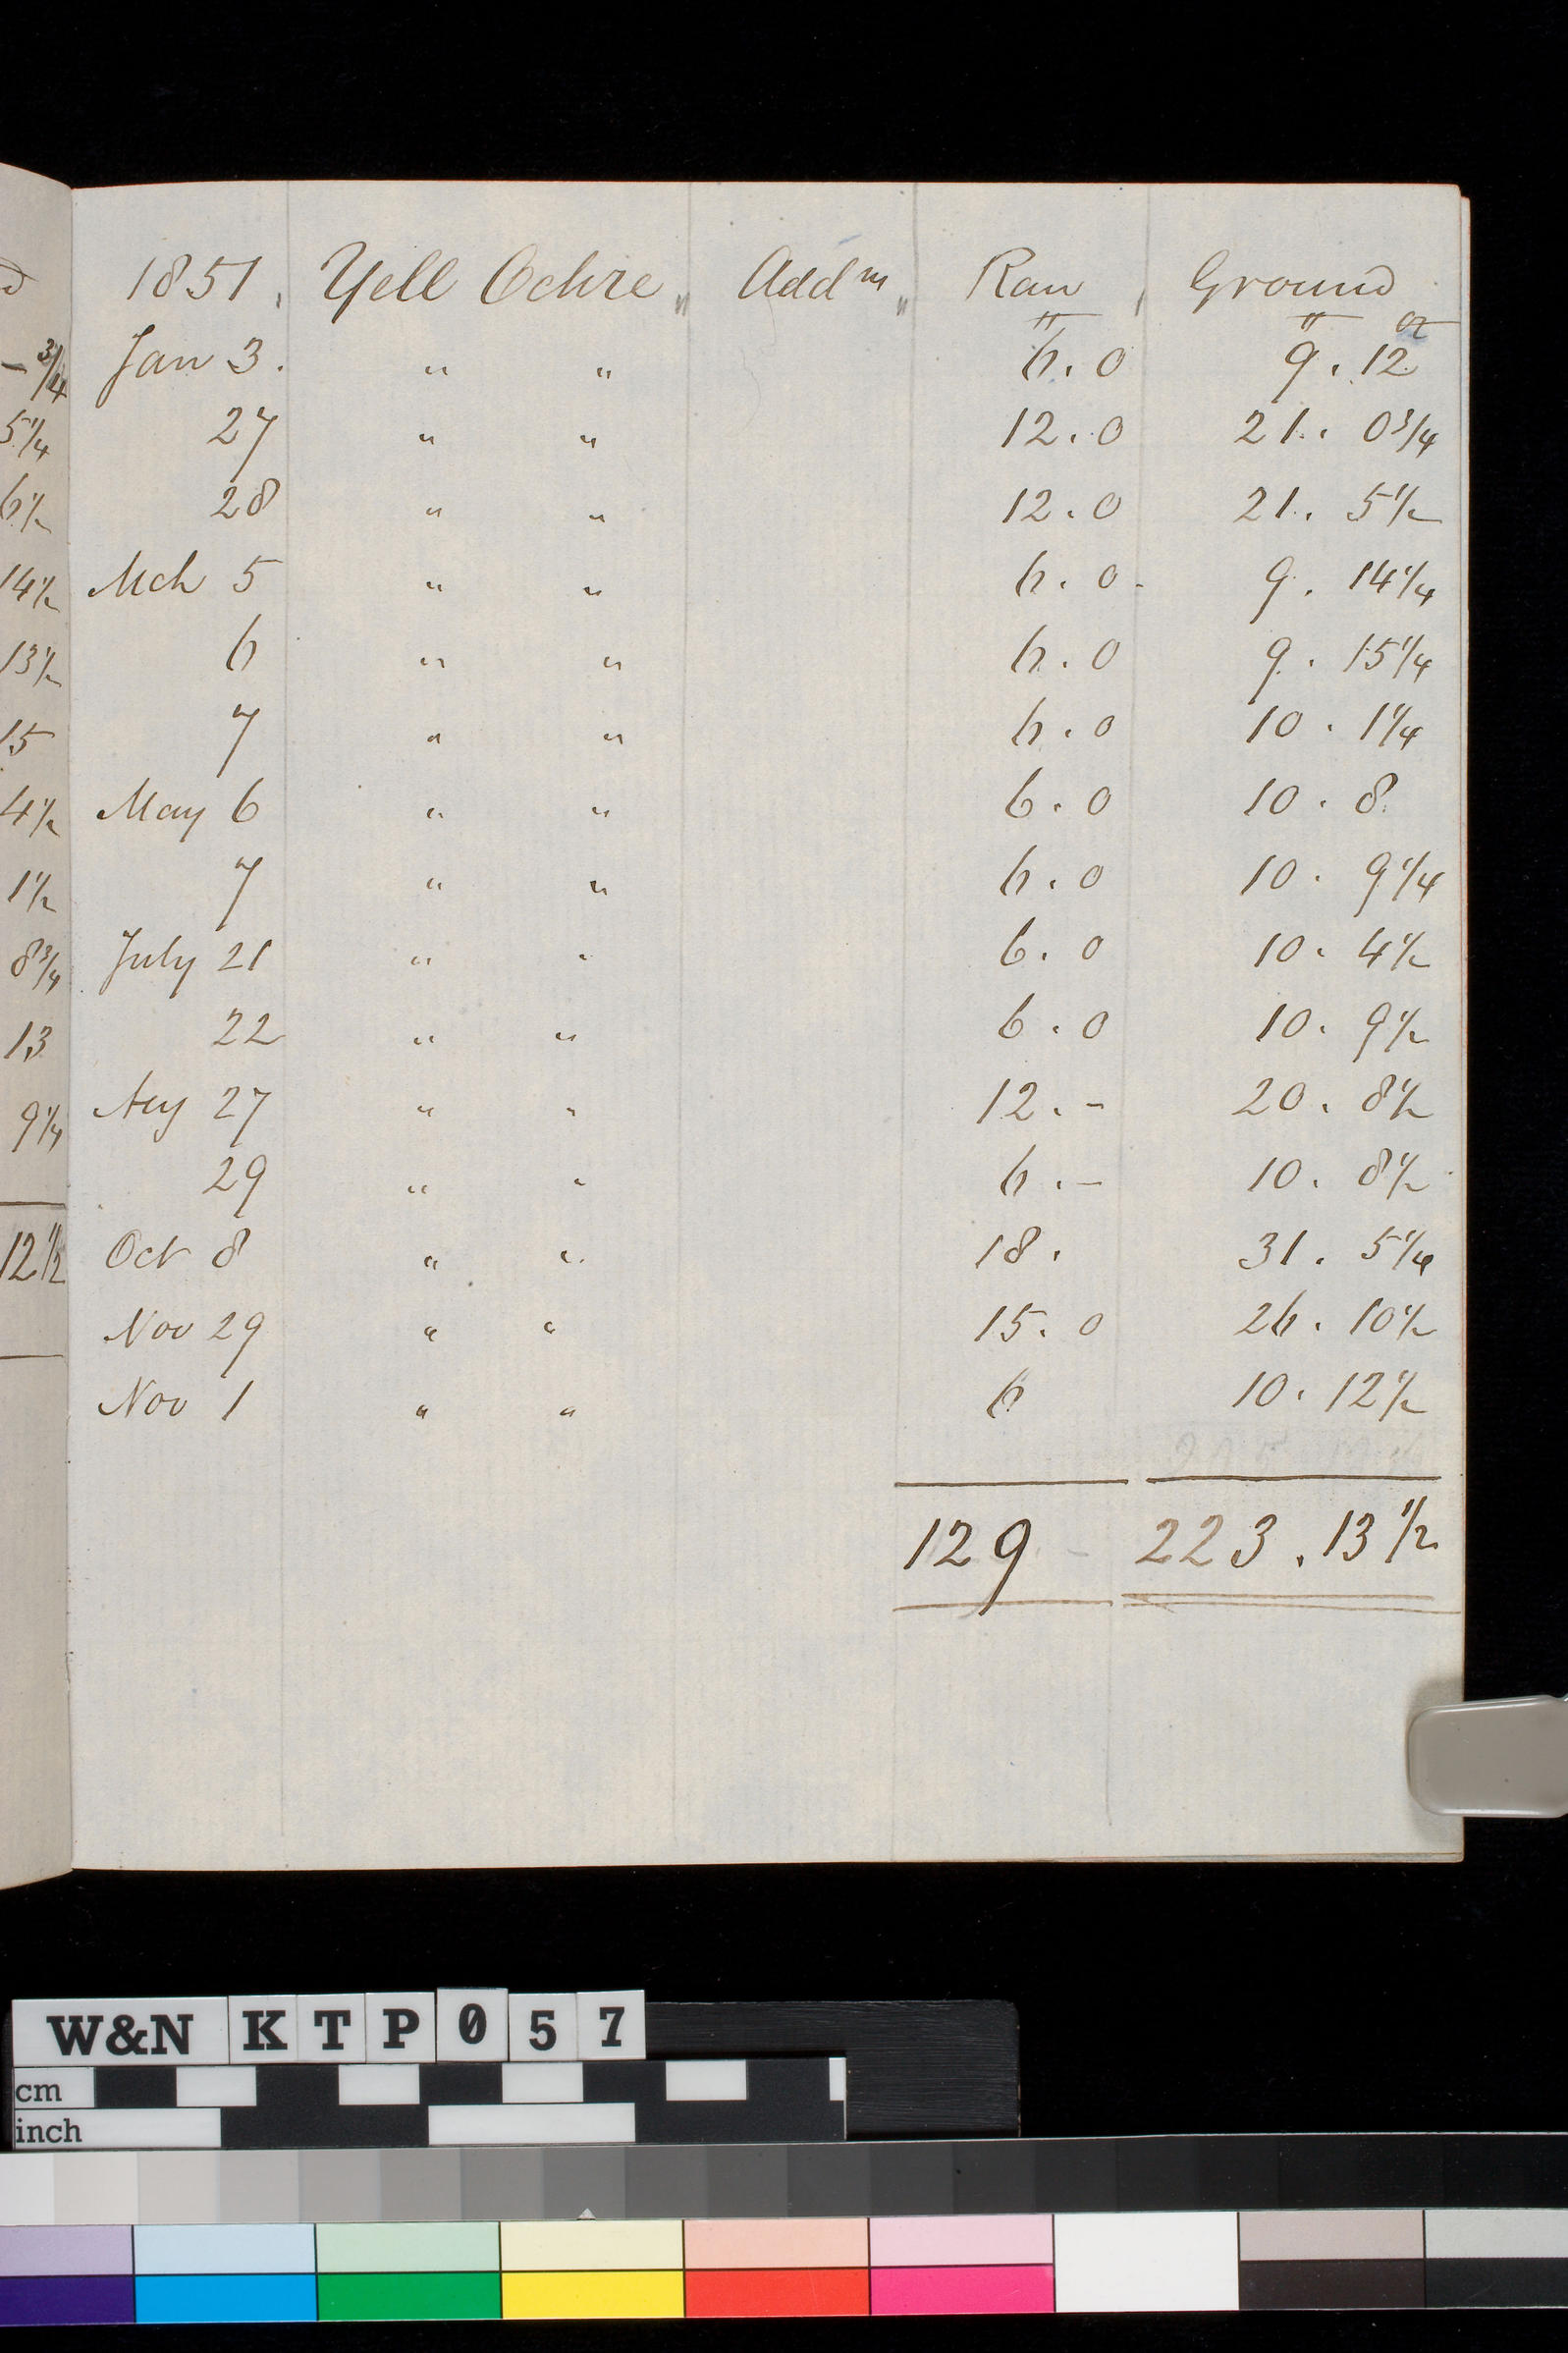 1851, Yell Ochre " Addns " Raw , Ground
" " oz
Jan 3. " " 6.0 9.12
27 " " 12.0 21. 0 3/4
28 " " 12.0 21. 5 1/2
Mch 5 " " 6.0- 9. 14 1/4
6 " " 6.0 9. 15 1/4
7 " " 6.0 10. 1 1/4
May 6 " " 6.0 10. 8
7 " " 6.0 10. 9 1/4
July 21 " " 6.0 10. 4 1/2
22 " " 6.0 10. 9 1/2
Aug 27 " " 12.- 20. 8 1/2
29 " " 6.- 10. 8 1/2
Oct 8 " " 18. 31. 5 1/4
Nov 29 " " 15.0 26. 10 1/2
Nov 1 " " 6 10. 12 1/2
129 - 223.13 1/2
- 3/4
5 1/4
6 1/2
14 1/2
13 1/2
15
4 1/2
1 1/2
8 3/4
13
9 1/4
12 1/2
W&N KTP057
cm
inch